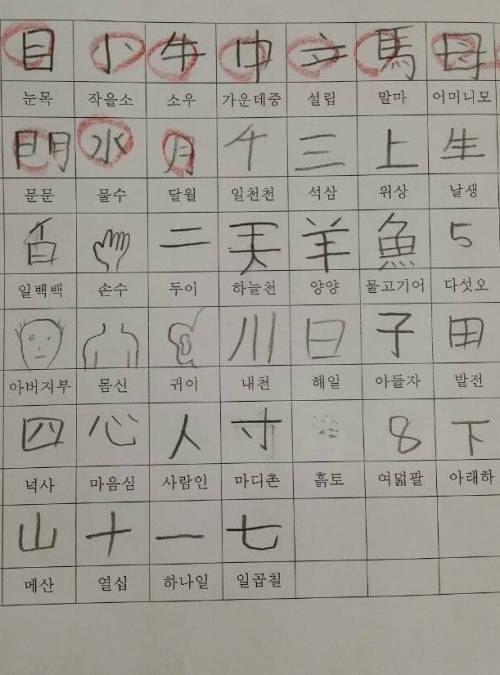 目 小 牛 中 立 馬 母
눈목 작을소 소우 가운데중 설립 말마 어머니모
門 水 月 千 三 上 生
문문 물수 달월 일천천 석삼 위상 날생
百 二 天 羊 魚 5
일백백 손수 두이 하늘천 양양 물고기어 다섯오
川 日 子 田
아버지부 몸신 귀이 내천 해일 아들자 밭전
四 心 人 寸 8 下
넉사 마음심 사람인 마디촌 흙토 여덟팔 아래하
山 十 一 七
메산 열십 하나일 일곱칠